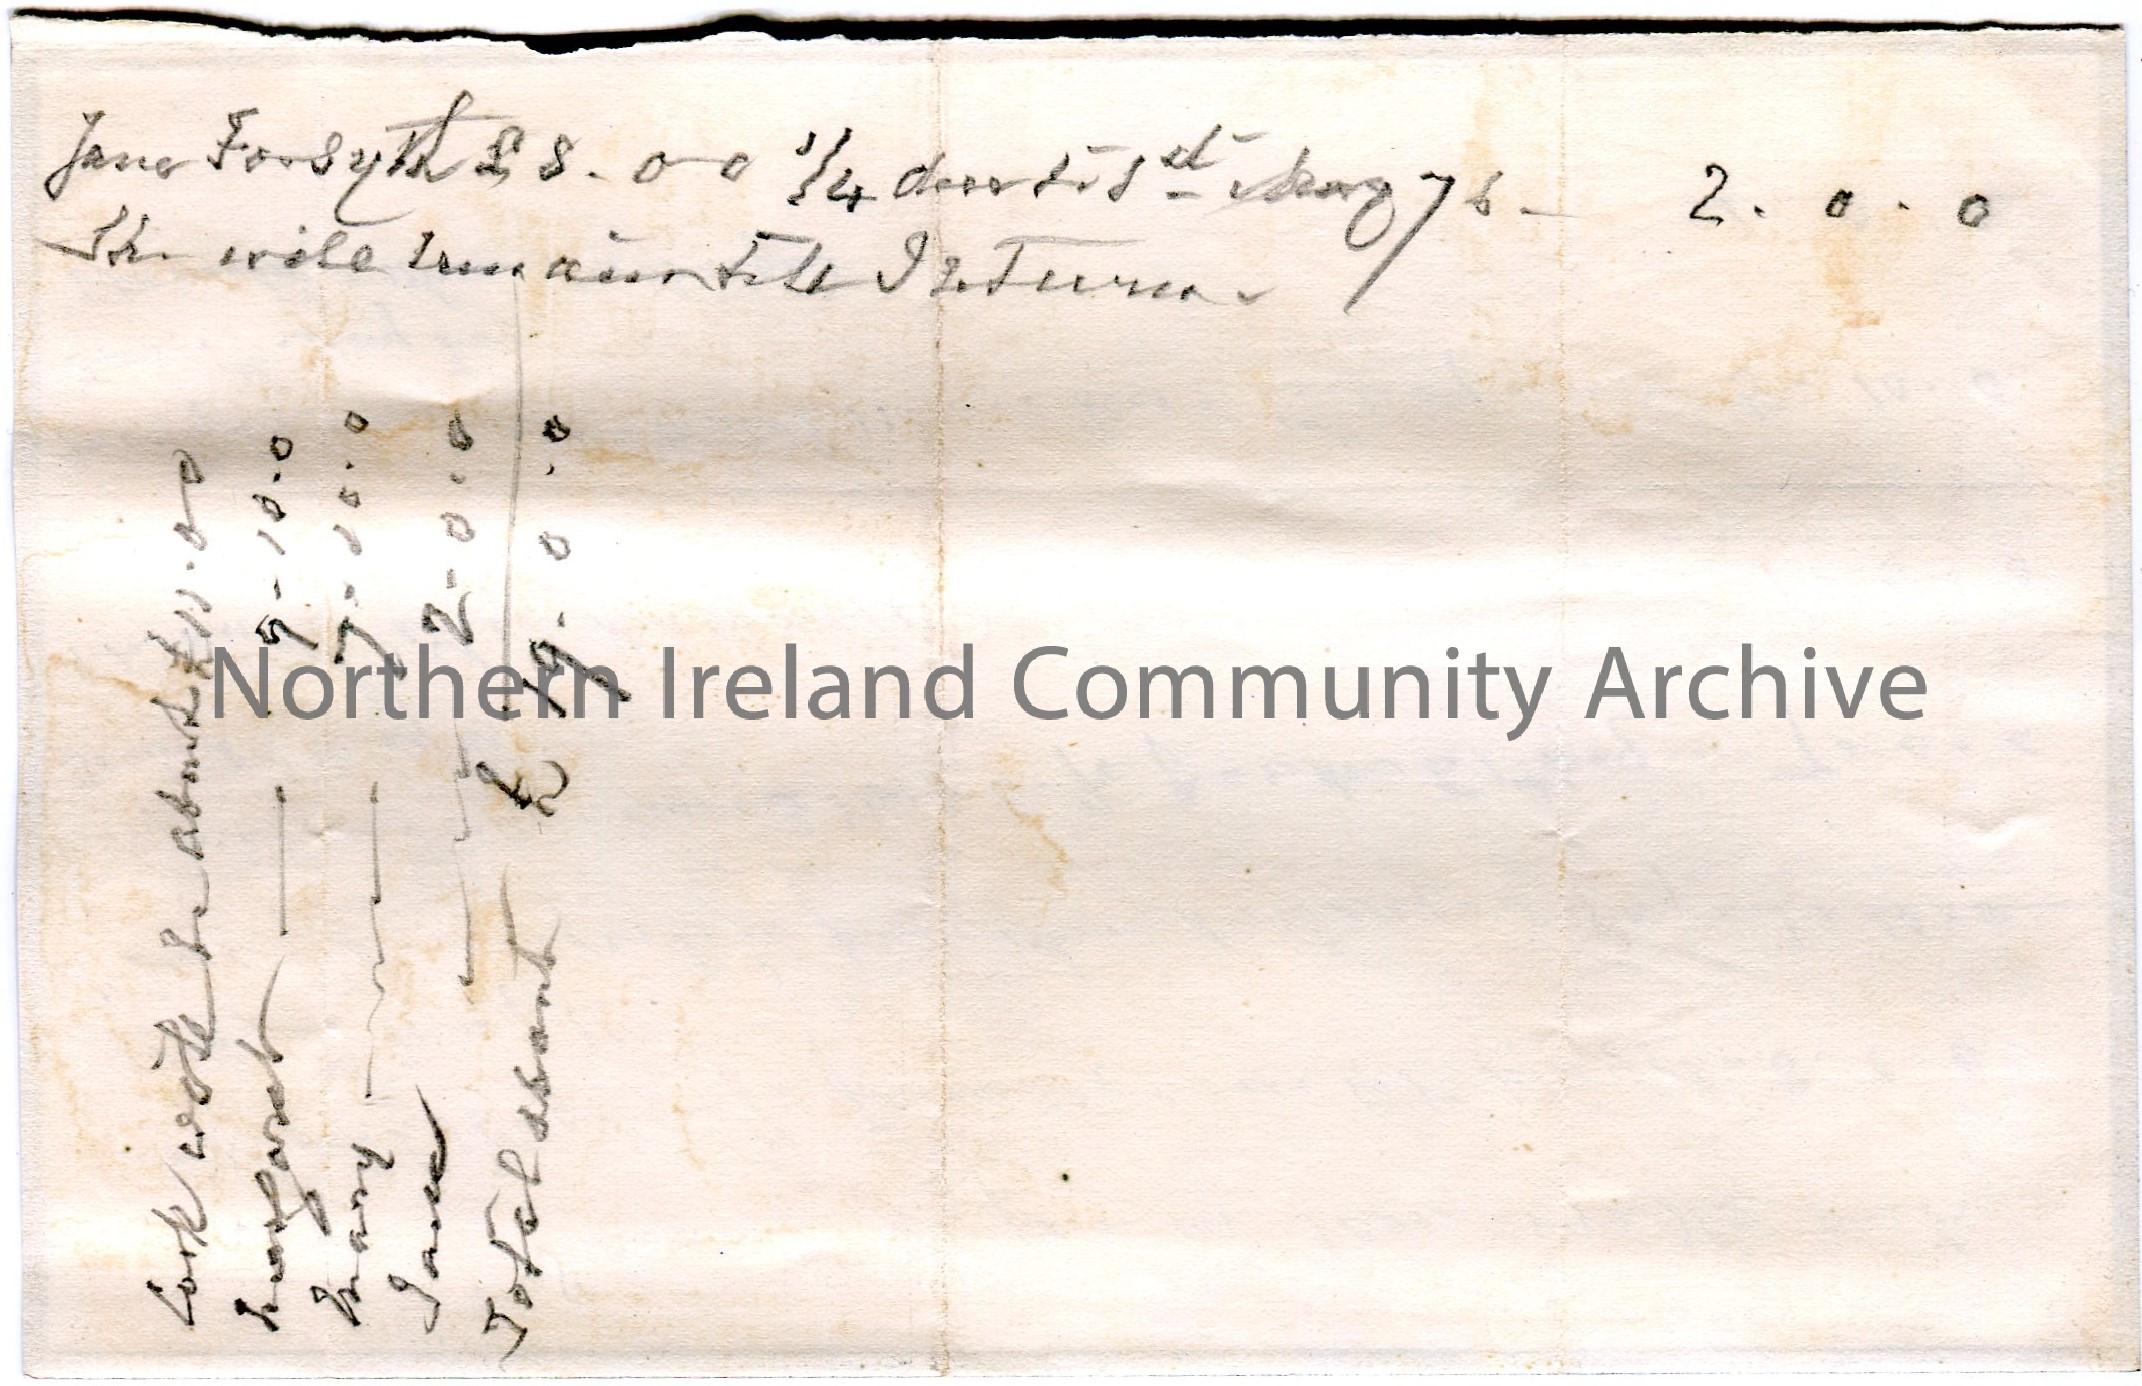 Jane Forsyth £8. 0-0 1/4 due to 1st May 76 - 2. 0. 0
She will remain till I return
Cook will be about £11. 0 0
Margaret — 7-10.0
Mary — 7.10.0
Jane — 2-0.0
Total about £ 19. 0. 0
Northern Ireland Community Archive